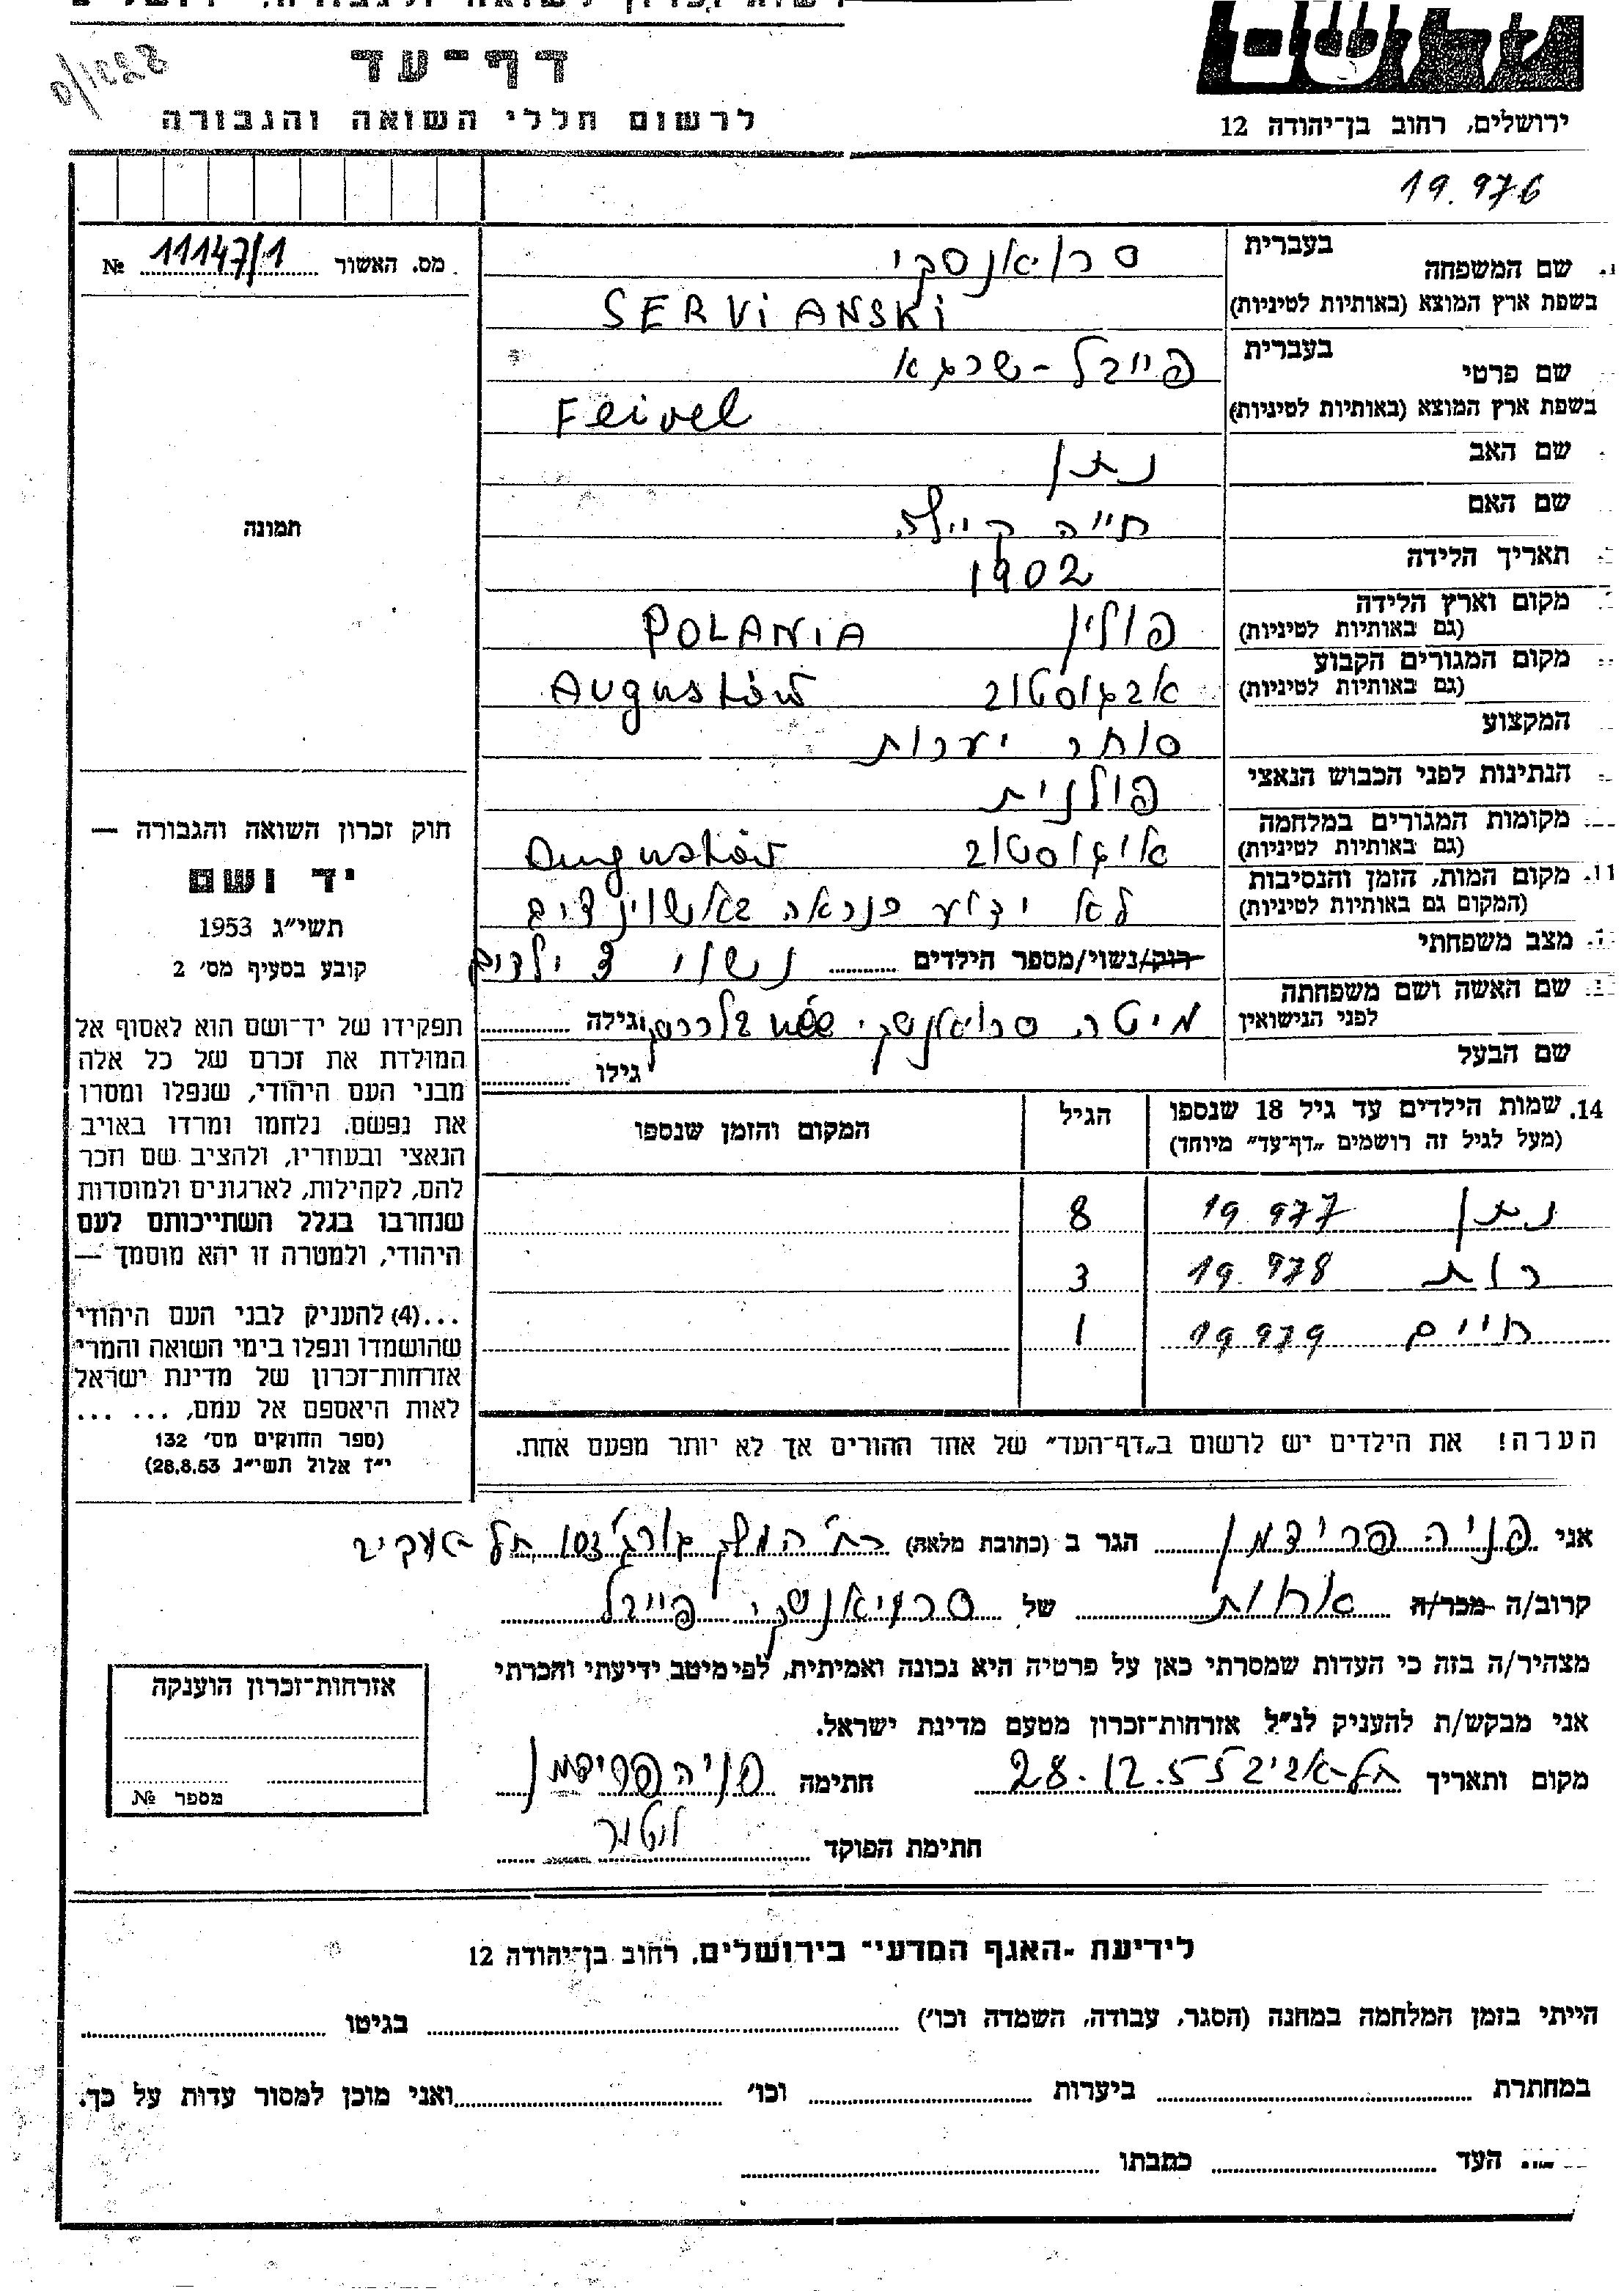 דף-עד
לרשום חללי השואה והגבורה
ירושלים, רחוב בן-יהודה 12
19.976
מס. האשור 11147/1 №
בעברית
שם המשפחה
סרויאנסקי
בשפת ארץ המוצא (באותיות לטיניות)
SERViANSKi
בעברית
שם פרטי
פייבל-שרגא
בשפת ארץ המוצא (באותיות לטיניות)
Feivel
שם האב
נתן
שם האם
חייה קיילה
תאריך הלידה
1902
מקום וארץ הלידה
(גם באותיות לטיניות)
פולין POLANiA
מקום המגורים הקבוע
(גם באותיות לטיניות)
אבגוסטוב Augustów
המקצוע
סוחר יערות
הנתינות לפני הכבוש הנאצי
פולנית
מקומות המגורים במלחמה
(גם באותיות לטיניות)
אוגוסטוב Augustów
11. מקום המות, הזמן והנסיבות
(המקום גם באותיות לטיניות)
לא ידוע כנראה באושוינציב
מצב משפחתי
רווק/נשוי/מספר הילדים נשוי 3 ילדים
שם האשה ושם משפחתה
לפני הנישואין
מיטה סרויאנסקי née וגילה
שם הבעל
גילו
14. שמות הילדים עד גיל 18 שנספו
(מעל לגיל זה רושמים "דף-עד" מיוחד)
הגיל
המקום והזמן שנספו
נתן 19.977 8
רות 19.978 3
חיים 19.979 1
הערה! את הילדים יש לרשום ב"דף-העד" של אחד ההורים אך לא יותר מפעם אחת.
תמונה
חוק זכרון השואה והגבורה —
יד ושם
תשי״ג 1953
קובע בסעיף מס׳ 2
תפקידו של יד-ושם הוא לאסוף אל
המולדת את זכרם של כל אלה
מבני העם היהודי, שנפלו ומסרו
את נפשם, נלחמו ומרדו באויב
הנאצי ובעוזריו, ולהציב שם וזכר
להם, לקהילות, לארגונים ולמוסדות
שנחרבו בגלל השתייכותם לעם
היהודי, ולמטרה זו יהא מוסמך —
...(4) להעניק לבני העם היהודי
שהושמדו ונפלו בימי השואה והמרי
אזרחות-זכרון של מדינת ישראל
לאות היאספם אל עמם, ... ...
(ספר החוקים מס׳ 132
י״ז אלול תשי״ג 28.8.53)
אני פניה פרידמן הגר ב (כתובת מלאה) רח׳ המלך ג׳ורג׳ תל-אביב
קרוב/ה מכר/ה אחות של סרויאנסקי פייבל
מצהיר/ה בזה כי העדות שמסרתי כאן על פרטיה היא נכונה ואמיתית, לפי מיטב ידיעתי והכרתי
אני מבקש/ת להעניק לנ״ל אזרחות-זכרון מטעם מדינת ישראל.
מקום ותאריך תל-אביב 28.12.55 חתימה פניה פרידמן
חתימת הפוקד
אזרחות-זכרון הוענקה
מספר №
לידיעת "האגף המדעי" בירושלים, רחוב בן-יהודה 12
הייתי בזמן המלחמה במחנה (הסגר, עבודה, השמדה וכו׳) בגיטו
במחתרת ביערות וכו׳ ואני מוכן למסור עדות על כך.
העד כתבתו